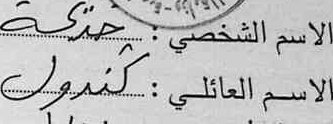 الاسم الشخصي : خديجة
الاسم العائلي : كندول